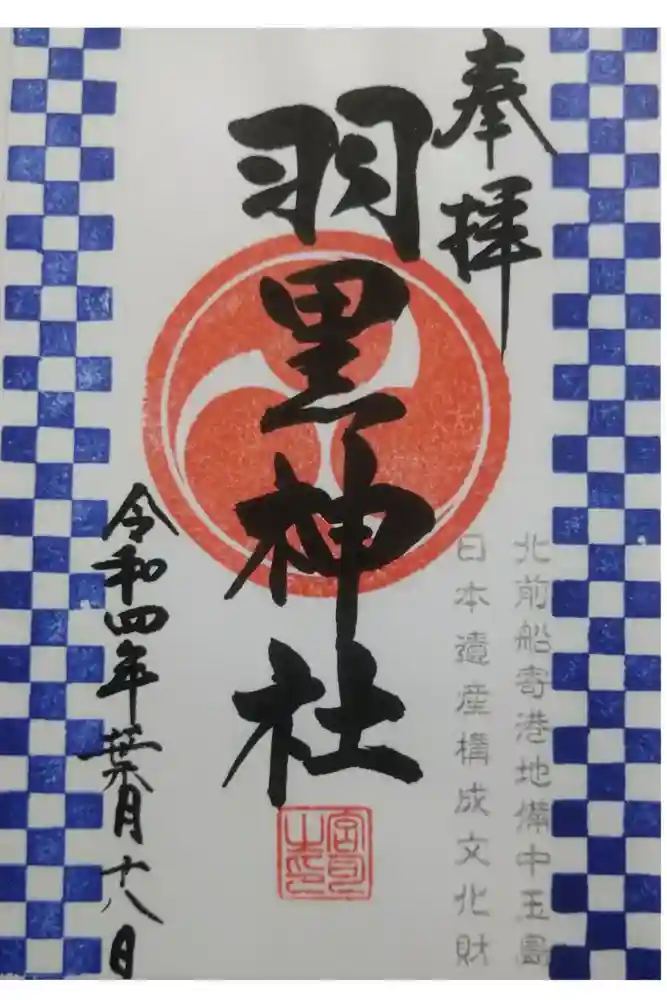 奉拝
北前船寄港地備中玉島
日本遺産構成文化財
羽黒神社
宮司
之印
令和四年葉月十八日